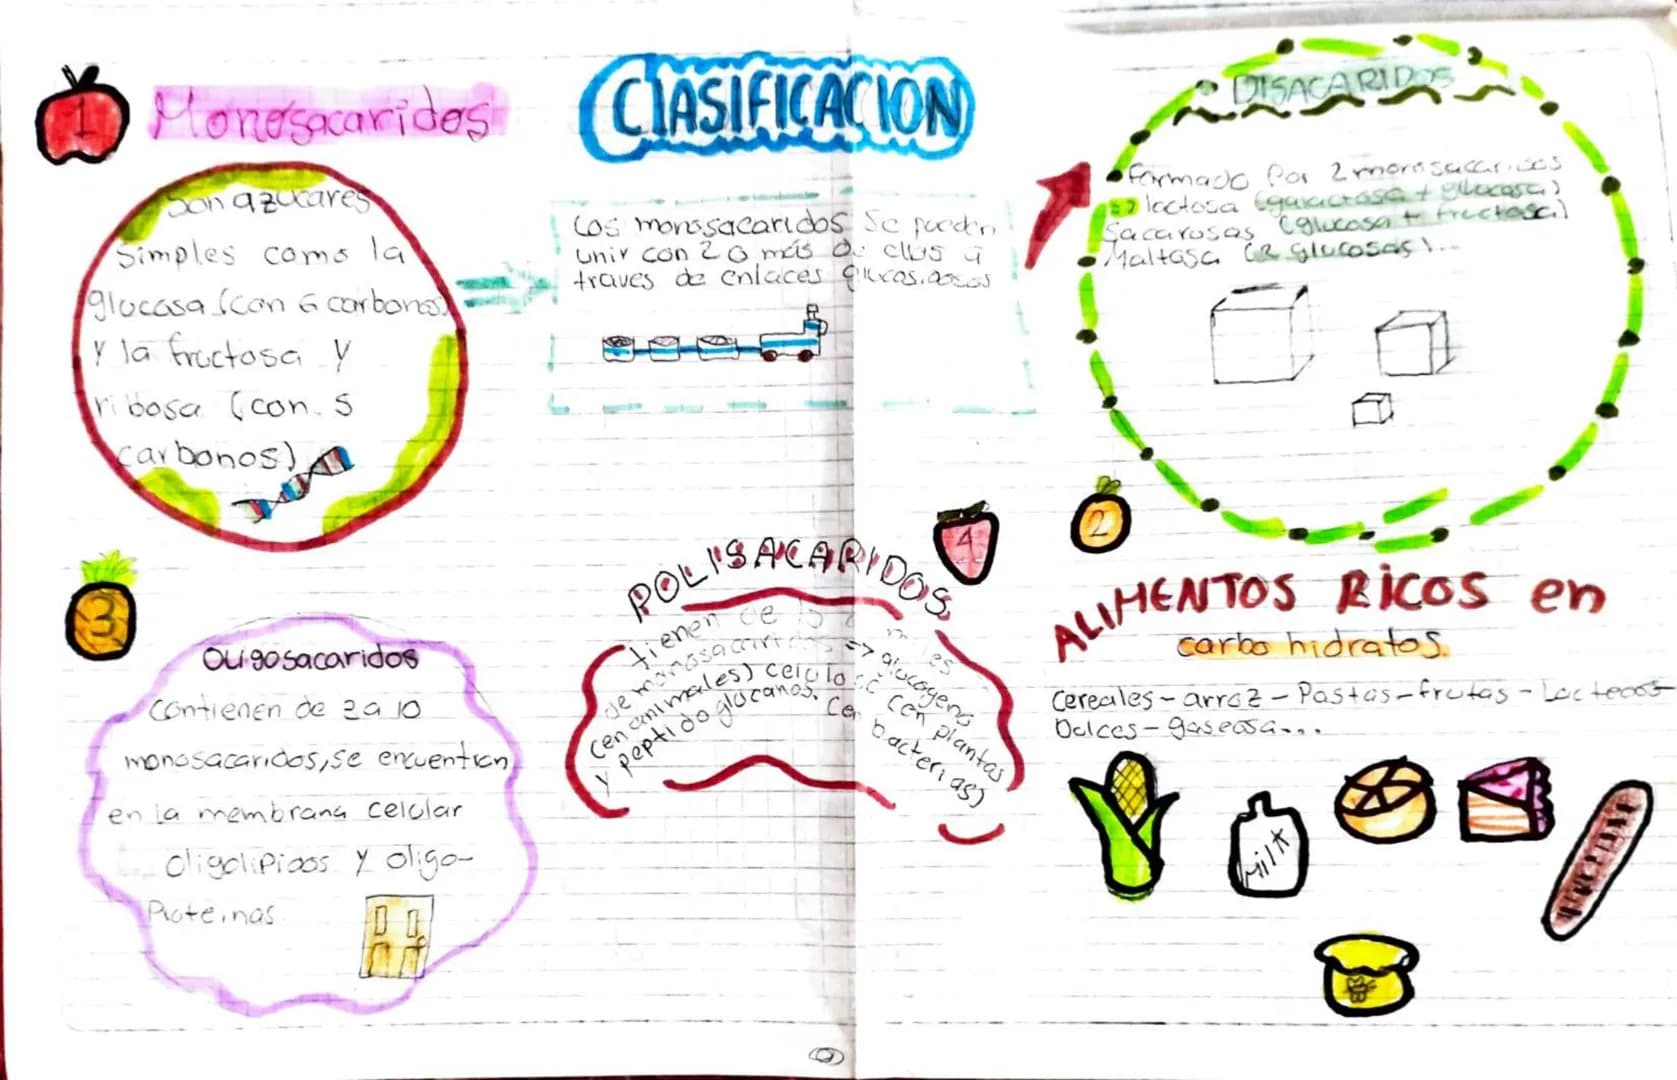 CLASIFICACION
1
Monosacaridos
Son azucares
simples como la
glucosa (con 6 carbonos)
y la fructosa y
ribosa (con 5
carbonos)
Los monosacaridos se pueden
unir con 2 o más de ellos a
traves de enlaces
DISACARIDOS
• Formado por 2 monosacaridos
=> lactosa (galactosa + glucosa)
Sacarosas (glucosa + fructosa)
Maltasa (2 glucosas)...
2
3
Oligosacaridos
Contienen de 2 a 10
monosacaridos, se encuentran
en la membrana celular
Oligolipidos y oligo-
Proteinas
4
POLISACARIDOS
tienen de miles
de monosacaridos => glucogeno
(en animales) celulosa (en plantas
y peptidoglucanos. (en bacterias)
ALIMENTOS RICOS en
carbohidratos.
Cereales - arroz - Pastas - frutas - Lacteos
Dulces - gaseosa...
Milk